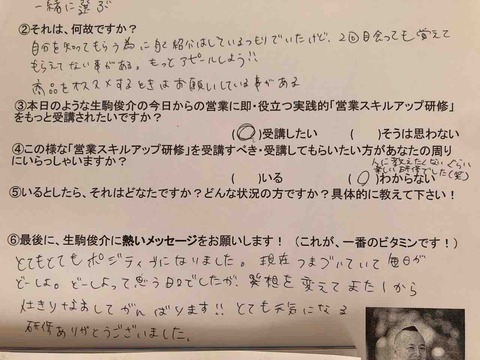 一緒に選ぶ
②それは、何故ですか？
自分を知ってもらう為に自己紹介はしているつもりでいたけど、2回目会っても覚えて
もらえてない事がある。もっとアピールしよう!!
商品をオススメするときはお願いしている事がある
③本日のような生駒俊介の今日からの営業に即・役立つ実践的「営業スキルアップ研修」
をもっと受講されたいですか？
(○)受講したい ( )そうは思わない
④この様な「営業スキルアップ研修」を受講すべき・受講してもらいたい方があなたの周り
にいらっしゃいますか？
人に教えたくないぐらい
楽しい研修でした(笑)
( )いる (○)わからない
⑤いるとしたら、それはどなたですか？どんな状況の方ですか？具体的に教えて下さい！
⑥最後に、生駒俊介に熱いメッセージをお願いします！（これが、一番のビタミンです！）
とてもとてもポジティブになりました。現在つまづいていて毎日が
どーしよ。どーしよって思う日々でしたが、発想を変えてまた1から
仕きりなおしてがんばります!! とても元気になる
研修ありがとうございました。